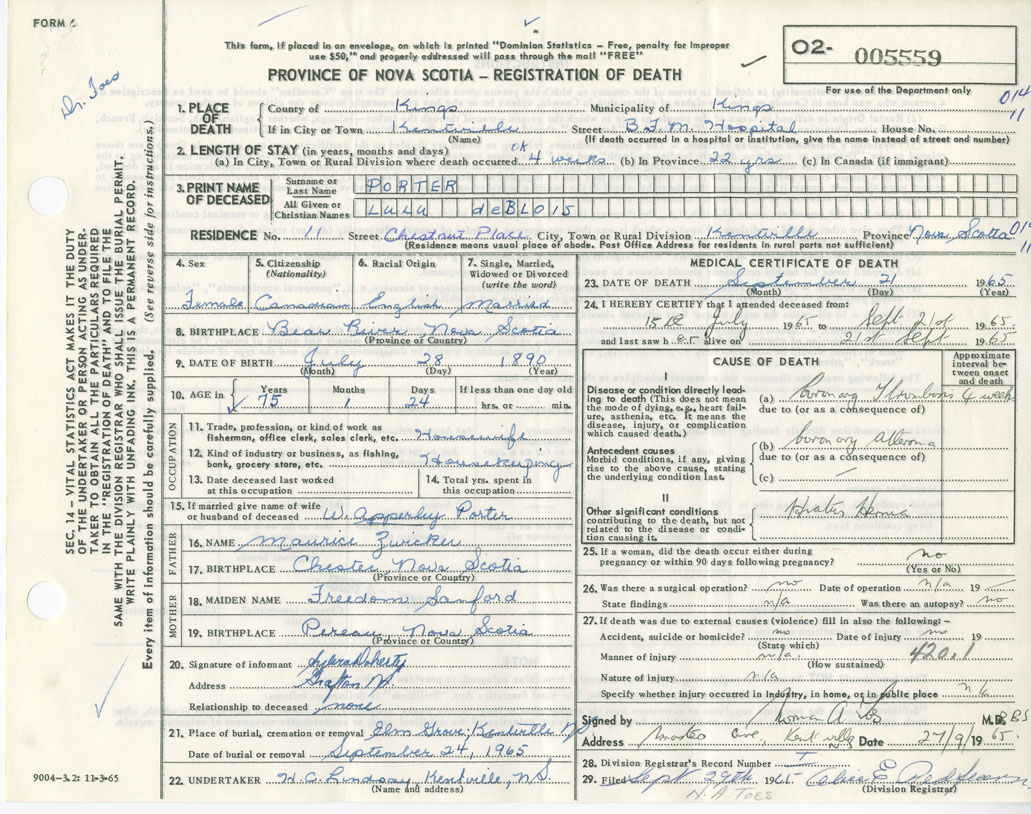 FORM 6
This form, if placed in an envelope, on which is printed "Dominion Statistics – Free, penalty for improper
use $50," and properly addressed will pass through the mail "FREE"
PROVINCE OF NOVA SCOTIA – REGISTRATION OF DEATH
O2- 005559
For use of the Department only
014
11
Dr. Toes
SEC. 14 – VITAL STATISTICS ACT MAKES IT THE DUTY
OF THE UNDERTAKER OR PERSON ACTING AS UNDER-
TAKER TO OBTAIN ALL THE PARTICULARS REQUIRED
IN THE "REGISTRATION OF DEATH" AND TO FILE THE
SAME WITH THE DIVISION REGISTRAR WHO SHALL ISSUE THE BURIAL PERMIT.
WRITE PLAINLY WITH UNFADING INK, THIS IS A PERMANENT RECORD.
Every item of information should be carefully supplied. (See reverse side for instructions.)
1. PLACE OF DEATH
County of Kings Municipality of Kings
If in City or Town Kentville Street B.F.M. Hospital House No.
(Name) (If death occurred in a hospital or institution, give the name instead of street and number)
2. LENGTH OF STAY (in years, months and days) OK
(a) In City, Town or Rural Division where death occurred 4 weeks (b) In Province 22 yrs (c) In Canada (if immigrant)
3. PRINT NAME OF DECEASED
Surname or Last Name PORTER
All Given or Christian Names LULU deBLOIS
RESIDENCE No. 11 Street Chestnut Place City, Town or Rural Division Kentville Province Nova Scotia 014
11
(Residence means usual place of abode. Post Office Address for residents in rural parts not sufficient)
4. Sex 5. Citizenship (Nationality) 6. Racial Origin 7. Single, Married, Widowed or Divorced (write the word)
Female Canadian English Married
8. BIRTHPLACE Bear River Nova Scotia
(Province or Country)
9. DATE OF BIRTH July 28 1890
(Month) (Day) (Year)
10. AGE in Years Months Days If less than one day
75 1 24 hrs. or min.
OCCUPATION
11. Trade, profession, or kind of work as fisherman, office clerk, sales clerk, etc. Housewife
12. Kind of industry or business, as fishing, bank, grocery store, etc. Housekeeping
13. Date deceased last worked at this occupation
14. Total yrs. spent in this occupation
15. If married give name of wife or husband of deceased W. Apperley Porter
FATHER
16. NAME Maurice Zwicker
17. BIRTHPLACE Chester Nova Scotia
(Province or Country)
MOTHER
18. MAIDEN NAME Freedom Sanford
19. BIRTHPLACE Pereau Nova Scotia
(Province or Country)
20. Signature of informant Doherty
Address Grafton N.S.
Relationship to deceased none
21. Place of burial, cremation or removal Elm Grove, Kentville N.S.
Date of burial or removal September 24, 1965
22. UNDERTAKER H.C. Lindsay, Kentville, N.S.
(Name and address)
9004-3.2: 11-3-65
MEDICAL CERTIFICATE OF DEATH
23. DATE OF DEATH September 21 1965
(Month) (Day) (Year)
24. I HEREBY CERTIFY that I attended deceased from:
15th July 1965 to Sept 21st 1965
and last saw her alive on 21st Sept 1965
CAUSE OF DEATH
Approximate interval between onset and death
I
Disease or condition directly leading to death (This does not mean the mode of dying, e.g., heart failure, asthenia, etc. It means the disease, injury, or complication which caused death.)
(a) Coronary Thrombosis 4 weeks
due to (or as a consequence of)
Antecedent causes
Morbid conditions, if any, giving rise to the above cause, stating the underlying condition last.
(b) Coronary Atheroma
due to (or as a consequence of)
(c)
II
Other significant conditions contributing to the death, but not related to the disease or condition causing it.
Hiatus Hernia
25. If a woman, did the death occur either during pregnancy or within 90 days following pregnancy? no
(Yes or No)
26. Was there a surgical operation? no Date of operation n/a 19
State findings n/a Was there an autopsy? no
27. If death was due to external causes (violence) fill in also the following:–
Accident, suicide or homicide? no Date of injury no 19
(State which)
Manner of injury n/a 420.1
(How sustained)
Nature of injury n/a
Specify whether injury occurred in industry, in home, or in public place n/a
Signed by M.D. BS
Address Ave, Kentville NS Date 27/9/1965
28. Division Registrar's Record Number
29. Filed Sept 29th 1965
(Division Registrar)
N.A. TOES